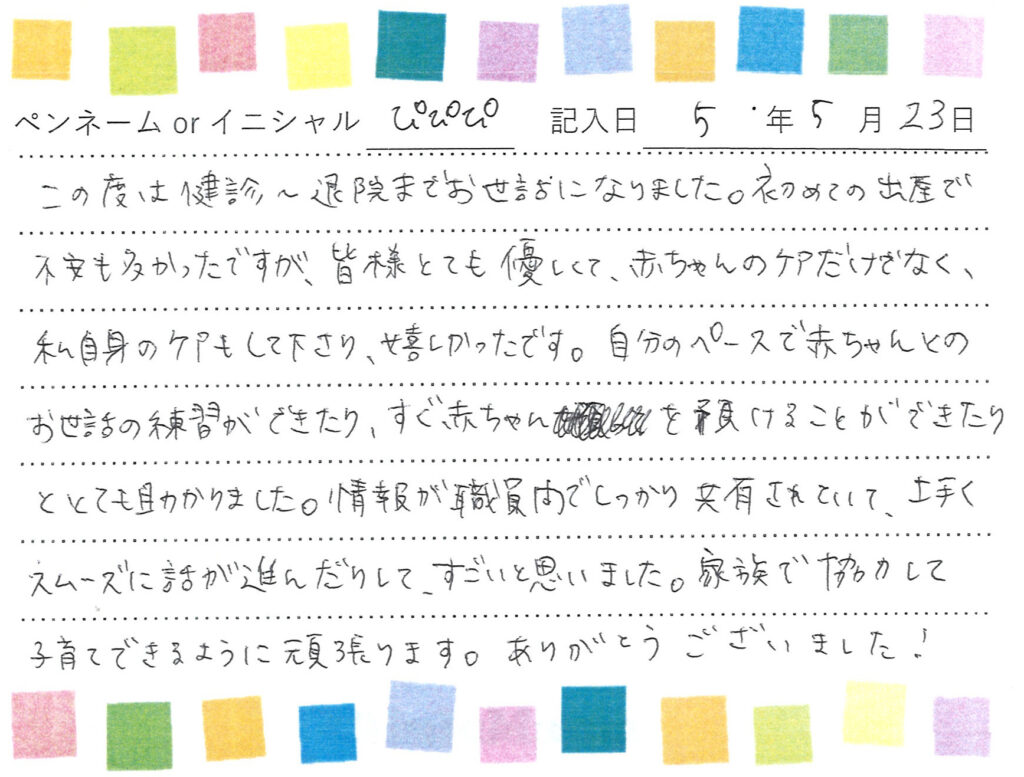 ペンネーム or イニシャル ぴぴぴ 記入日 5年5月23日
この度は健診～退院までお世話になりました。初めての出産で
不安も多かったですが、皆様とても優しくて、赤ちゃんのケアだけでなく、
私自身のケアもして下さり、嬉しかったです。自分のペースで赤ちゃんとの
お世話の練習ができたり、すぐ赤ちゃんを預けることができたり
ととても助かりました。情報が職員内でしっかり共有されていて、上手く
スムーズに話が進んだりして、すごいと思いました。家族で協力して
子育てできるように頑張ります。ありがとうございました!